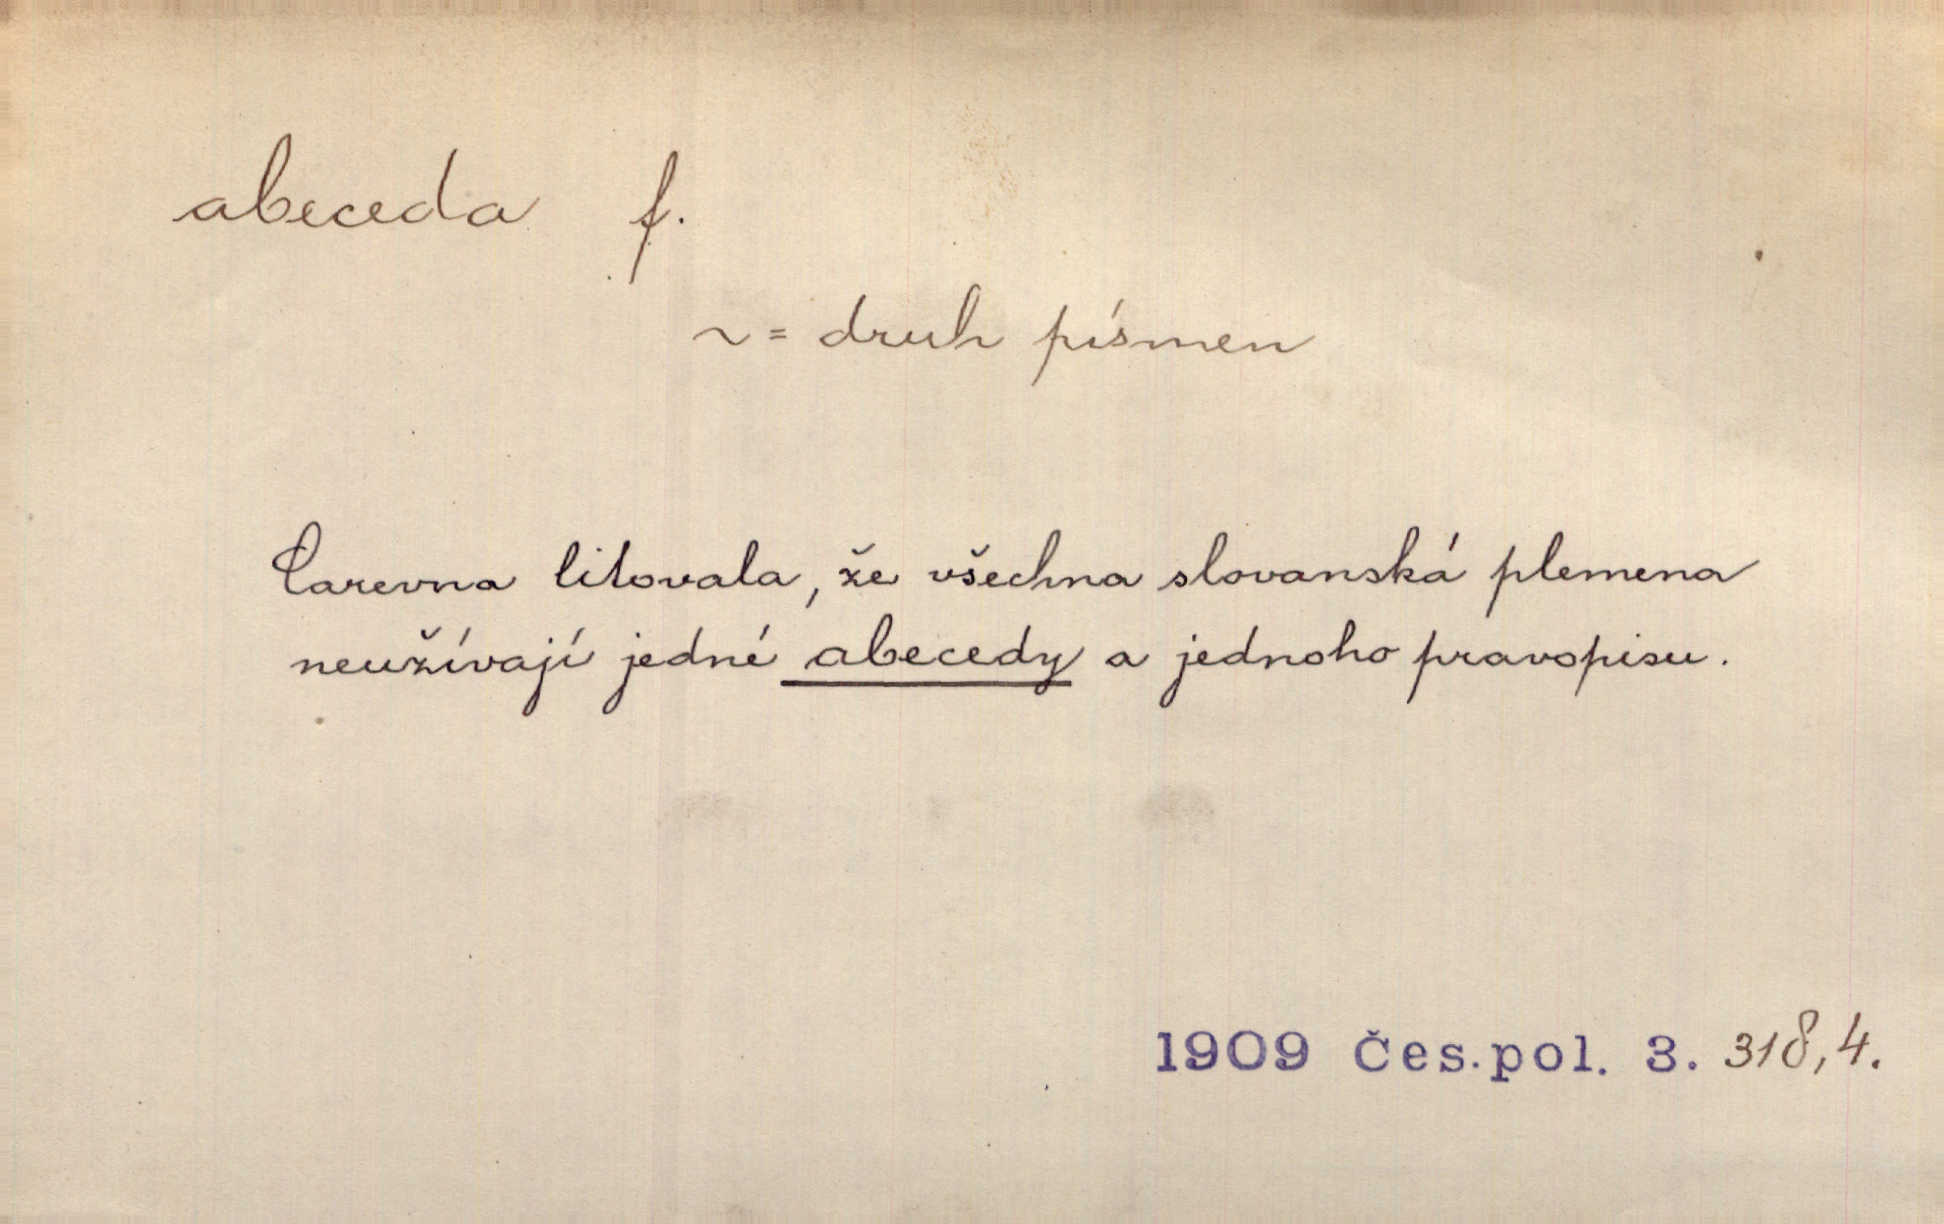 abeceda f.
~ = druh písmen
Carevna litovala, že všechna slovanská plemena
neužívají jedné abecedy a jednoho pravopisu.
1909 Čes.pol. 3. 318,4.